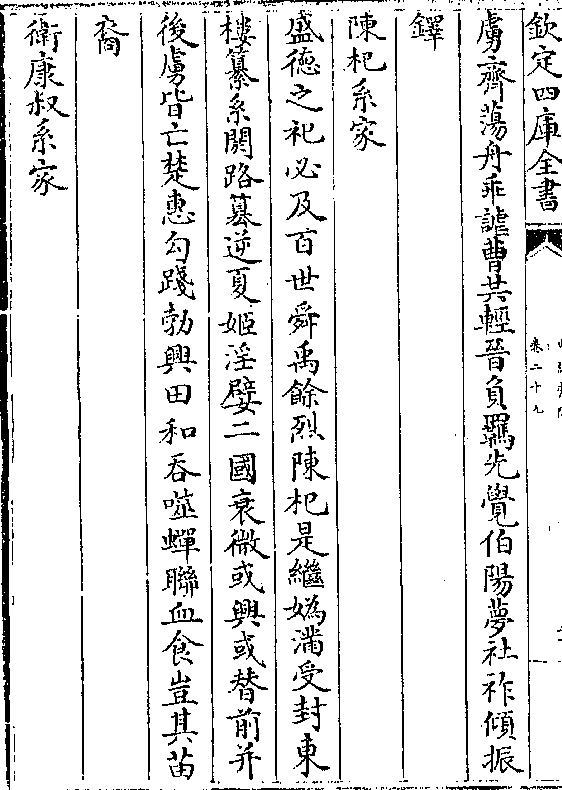 欽定四庫全書
卷二十九
虜齊蕩舟乖謔曹共輕晉負羈先覺伯陽夢社祚傾振
鐸
陳杞系家
盛徳之祀必及百世舜禹餘烈陳杞是繼媯滿受封東
樓纂系閼路篡逆夏姬淫嬖二國衰微或興或替前并
後虜皆亡楚惠勾踐勃興田和吞噬蟬聯血食豈其苗
裔
衛康叔系家